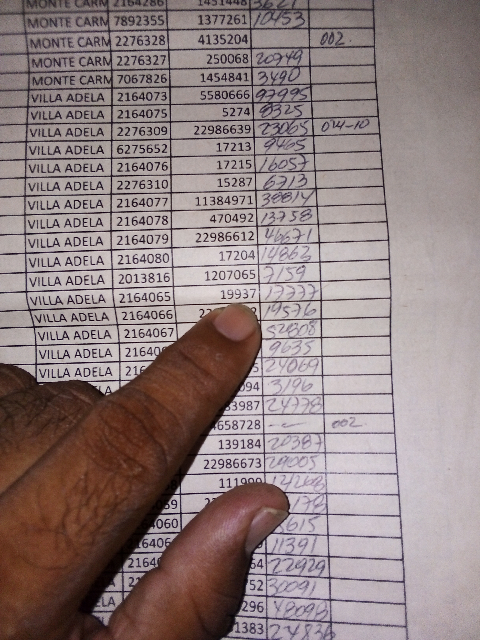 MONTE CARM 2164286 1451448 3621
MONTE CARM 7892355 1377261 10453
MONTE CARM 2276328 4135204 002.
MONTE CARM 2276327 250068 20749
MONTE CARM 7067826 1454841 3490
VILLA ADELA 2164073 5580666 97995
VILLA ADELA 2164075 5274 8325
VILLA ADELA 2276309 22986639 23065 024-10
VILLA ADELA 6275652 17213 9465
VILLA ADELA 2164076 17215 16057
VILLA ADELA 2276310 15287 6713
VILLA ADELA 2164077 11384971 38814
VILLA ADELA 2164078 470492 13758
VILLA ADELA 2164079 22986612 46671
VILLA ADELA 2164080 17204 14863
VILLA ADELA 2013816 1207065 7159
VILLA ADELA 2164065 19937 17777
VILLA ADELA 2164066 19576
VILLA ADELA 2164067 52808
VILLA ADELA 9635
VILLA ADELA 24069
094 3196
83987 24778
4658728 002.
139184 20387
22986673 29005
111990
178
060 8615
2164 11391
2164 22929
752 30091
296 48098
1383